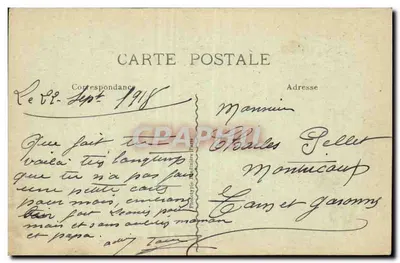 CARTE POSTALE
Correspondance
Adresse
Le 22 Sept 1918
Que fait tu
voilà tes longtemps
que tu n'a pas fais
une petite carte
pour moi,
fait
mais et sans oublier maman
et papa.
Monsieur
Charles Pellet
Montricoux
Tarn et Garonne
CPARAMA